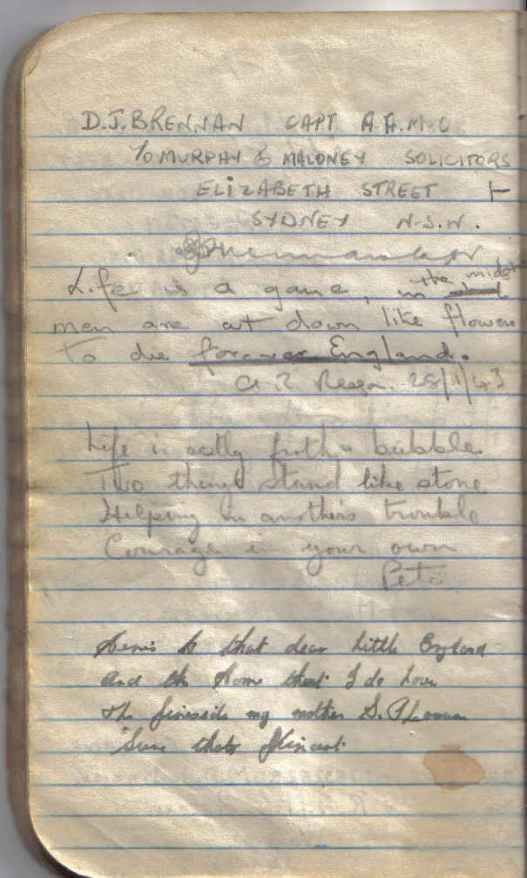 D.J. BRENNAN CAPT A.A.M.C
C/o MURPHY & MALONEY SOLICITORS
ELIZABETH STREET
SYDNEY N.S.W.
Life is a game, in the midst
men are cut down like flowers
To die for England.
25/1/43
Life is only froth & bubble
Two things stand like stone
Helping in another's trouble
Courage in your own
Pete
Heres to that dear little England
and the Home that I do love
The fireside my mother